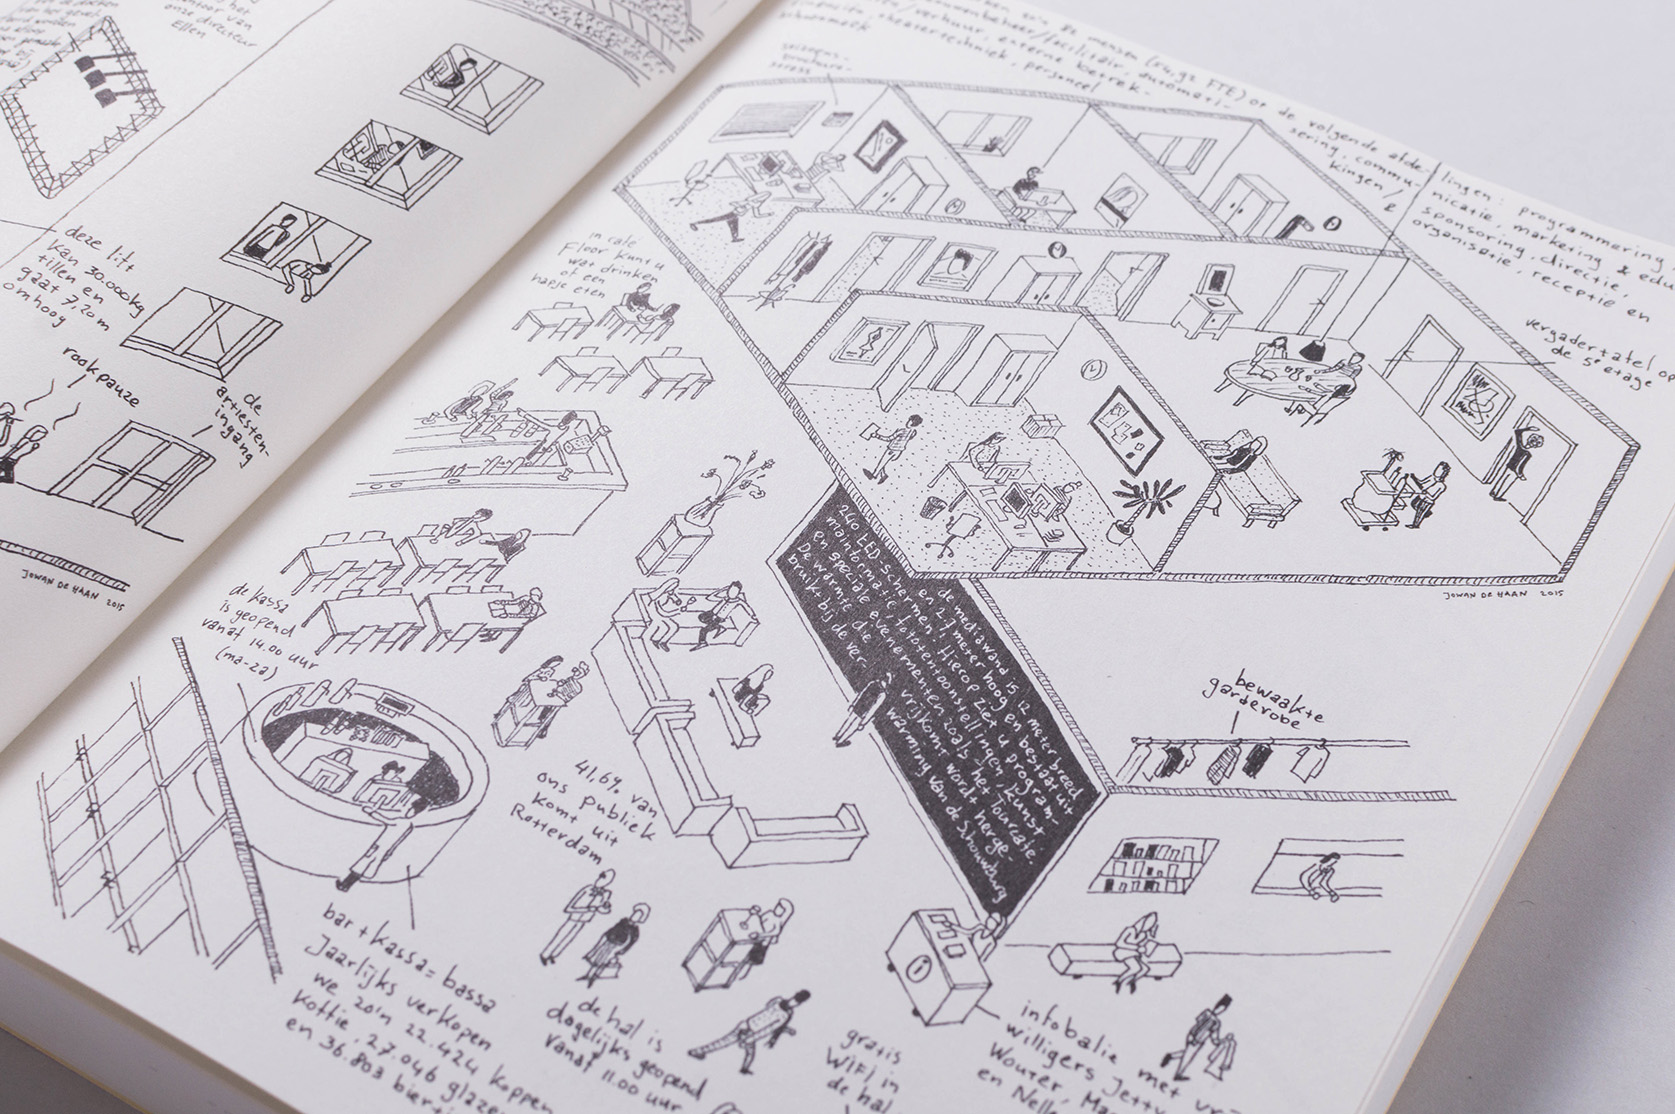 het
van
onze directeur
Ellen
deze lift
kan 30.000kg
tillen en
gaat 7,20m
omhoog
rookpauze
de
artiesten-
ingang
JOWAN DE HAAN 2015
mensen (64,92 FTE) of de volgende afde-
lingen: programmering,
/verhuur, externe betrek-
kingen/
/facilitair, automati-
sering, commu-
nicatie, marketing & edu
theatertechniek, personeel
sponsoring, directie,
organisatie, receptie en
seizoens-
brochure-
vergadertafel op
de 5e etage
in café
Floor kunt u
wat drinken
of een
hapje eten
JOWAN DE HAAN 2015
de mediawand is 12 meter breed
en 2,7 meter hoog en bestaat uit
240 LED schermen. Hierop ziet u program-
mainformatie, fototentoonstellingen, kunst
en speciale evenementen zoals het Tourcafé.
De warmte die vrijkomt wordt herge-
bruikt bij de verwarming van de Schouwburg
de kassa
is geopend
vanaf 14.00 uur
(ma-za)
bewaakte
garderobe
41,6% van
ons publiek
komt uit
Rotterdam
bar + kassa = bassa
Jaarlijks verkopen
we zo'n 22.424 koppen
koffie, 27.046 glazen
en 36.803 bier
de hal is
dagelijks geopend
vanaf 11.00 uur
gratis
WIFI in
de hal
infobalie met vrij-
willigers Jetty
Wouter, Ma
en Nelle